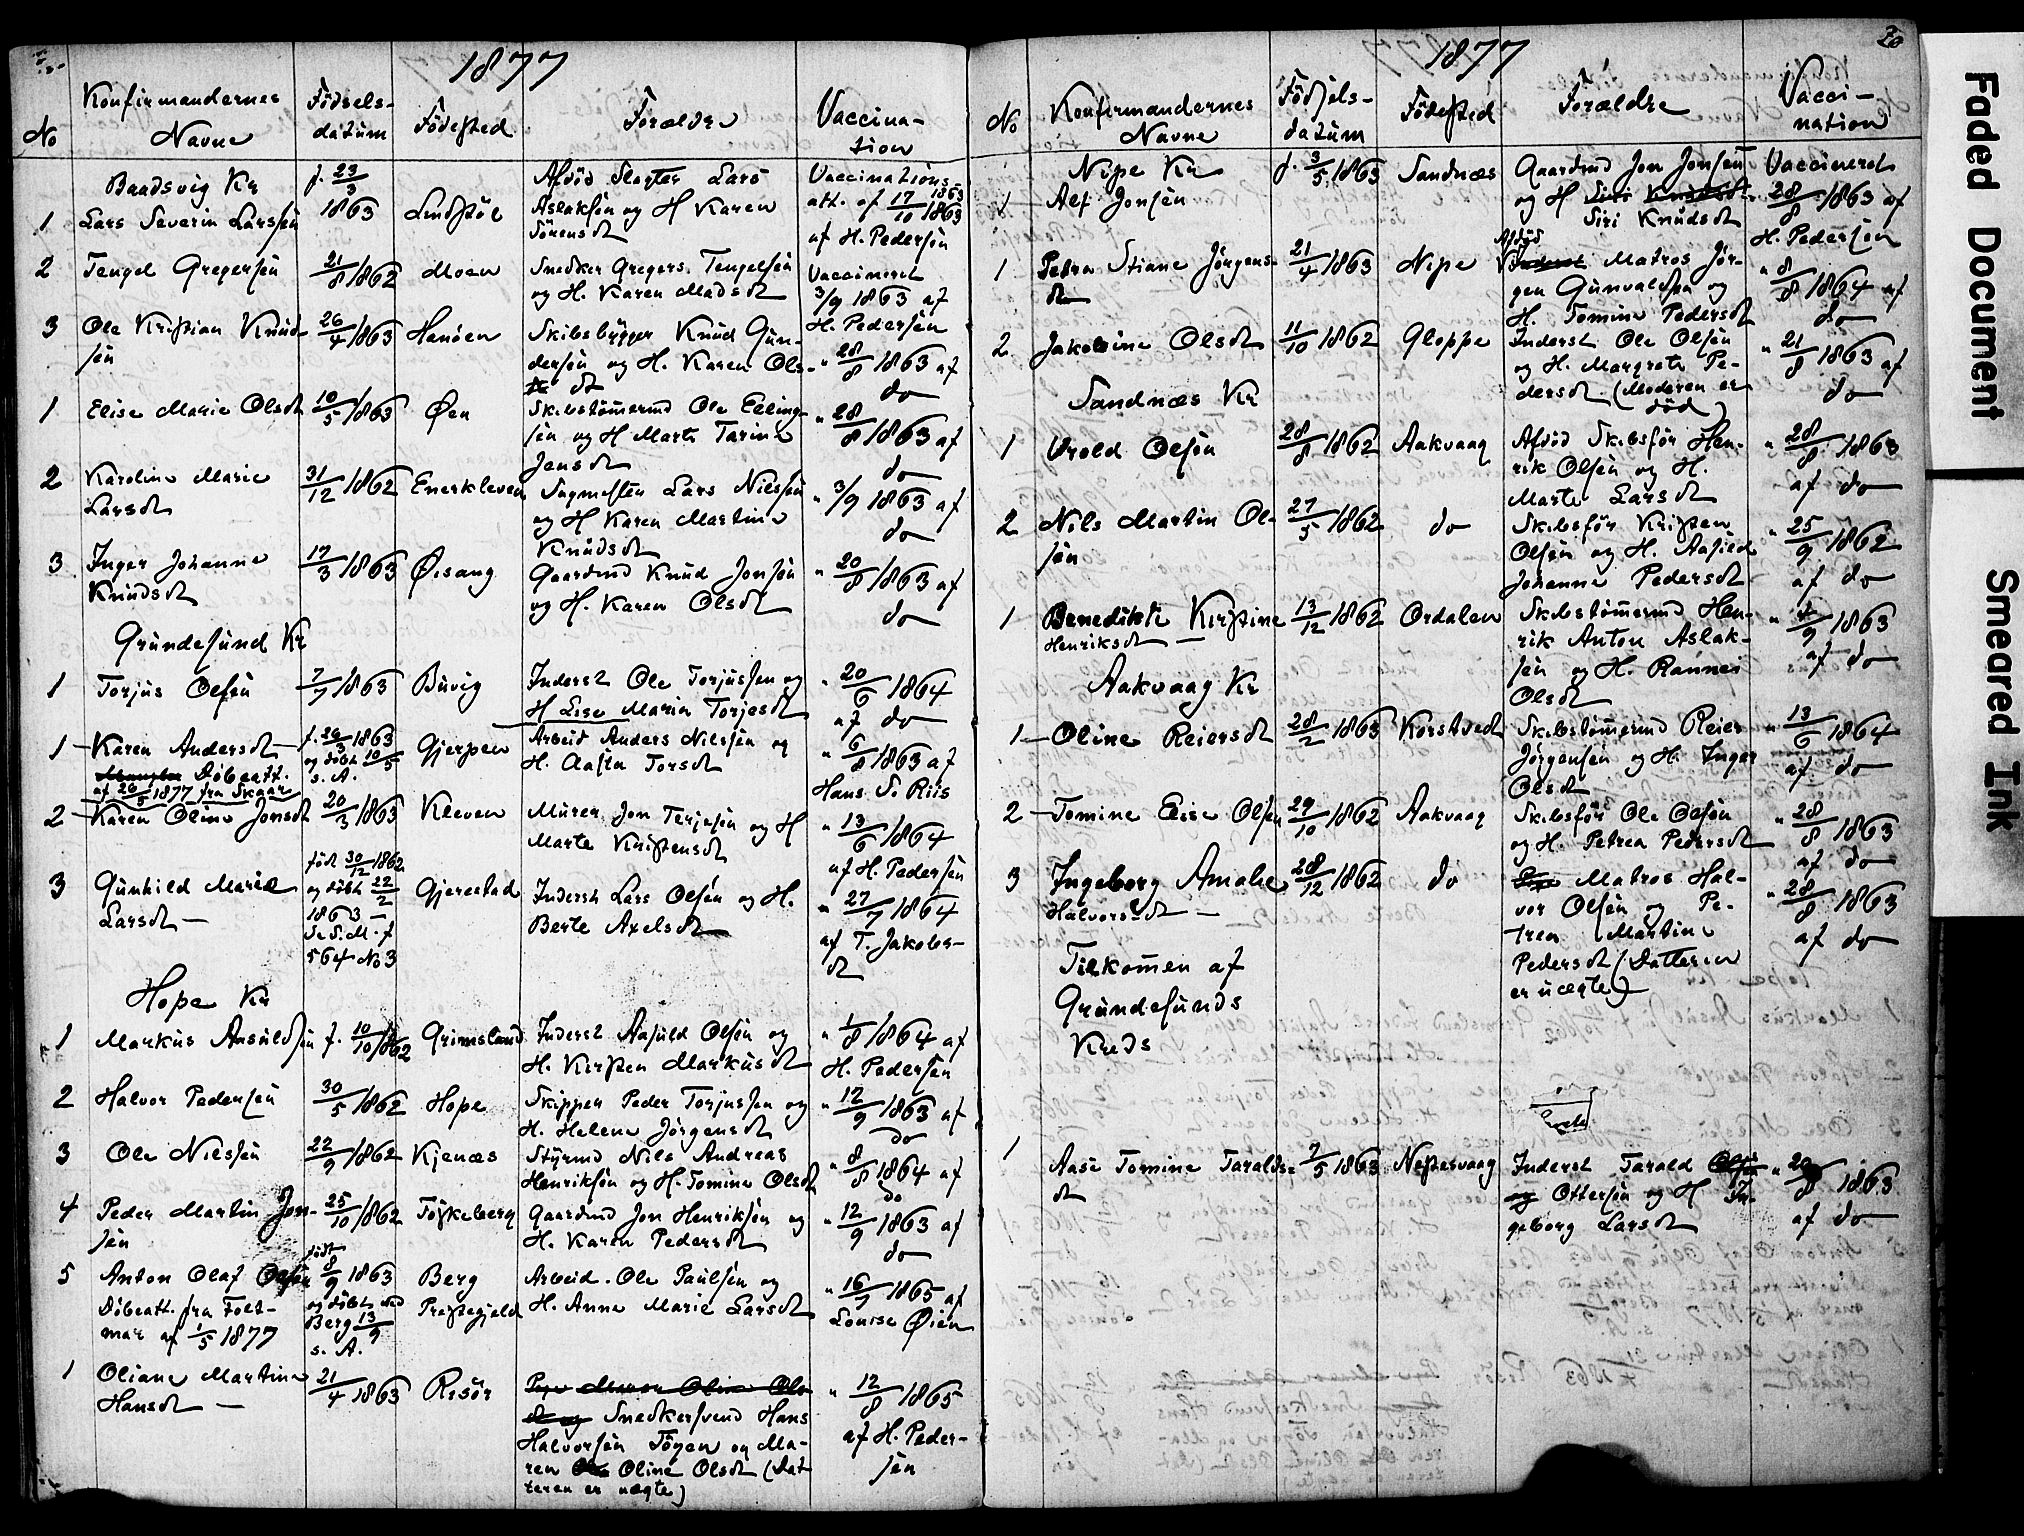 1877
No
Konfirmandernes
Navne
Födsels-
datum
Födested
Forældre
Vaccina-
tion
Baadsvig Kr
1
Lars Severin Larssen
f. 23/3
1863
Lindstøl
Afdöd Slagter Lars
Aslaksen og H Karen
Sörensdt
Vaccinations-
att. af 17/10 1863
af H. Pedersen
2
Tengel Gregersen
21/8 1862
Moen
Snedker Gregers Tengelsen
og H. Karen Madsdt
Vaccineret
3/9 1863 af
H. Pedersen
3
Ole Kristian Knud-
sen
26/4 1863
Hanöen
Skibsbygger Knud Gun-
dersen og H. Karen Ols-
dt
" 28/8 1863 af
do
1
Elise Marie Olsdt
10/5 1863
Øen
Skibstömermd Ole Elling-
sen og H Marte Tarine
Jensdt
" 28/8 1863 af
do
2
Karoline Marie
Larsdt
31/12 1862
Enerkleven
Sagmesten Lars Nilssen
og H Karen Martine
Knudsdt
" 3/9 1863 af
do
3
Inger Johanne
Knudsdt
17/3 1863
Øisang
Gaardmd Knud Jonsen
og H. Karen Olsdt
" 20/8 1863 af
do
Grundesund Kr
1
Torjus Olsen
7/7 1863
Buvig
Inderst Ole Torjussen og
H Lise Maria Torjesdt
" 20/6 1864
af do
1
Karen Andersdt
Döbeatt.
af 26/5 1877 fra Skaar
f. 26/3 1863
og döbt 10/5
s. A.
Gjerpen
Arbeid Anders Nilssen og
H. Aasta Torsdt
" 6/8 1863 af
Hans S. Riis
2
Karen Oline Jonsdt
20/3 1863
Kleven
Murer Jon Terjesen og H
Marte Kristensdt
" 13/6 1864
af H. Pedersen
3
Gunhild Marie
Larsdt
födt 30/12 1862
og döbt 22/2
1863 -
Se S.M. f
564 No 3
Gjerestad
Inderst Lars Olsen og H.
Berte Axelsdt
" 27/7 1864
af T. Jakobs-
dt
Hope Kr
1
Markus Aasuldsen
f. 10/10 1862
Grimsland
Inderst Aasuld Olsen og
H. Kirsten Markusdt
" 1/8 1864 af
H. Pedersen
2
Halvor Pedersen
30/5 1862
Hope
Skipper Peder Torjussen og
H. Helene Jörgensdt
" 12/9 1863 af
do
3
Ole Nilssen
22/9 1862
Kjenæs
Styrmd Nils Andreas
Henriksen og H. Tomine Olsdt
" 8/8 1864 af
do
4
Peder Martin Jon-
sen
25/10 1862
Töskeberg
Gaardmd Jon Henriksen og
H. Karen Pedersdt
" 12/9 1863 af
do
5
Anton Olaf Olsen
Döbeatt. fra Folt-
mar af 1/5 1877
födt
8/9 1863
og döbt ved
Berg 13/9
s. A.
Berg
Prestegjeld
Arbeid. Ole Paulsen og
H. Anne Marie Larsdt
" 16/7 1865 af
Louise Øien
1
Oliane Martine
Hansdt
21/4 1863
Risör
Pige Maren Oline Ols
dt og Snedkersvend Hans
Halvorsen Töyen og Ma-
ren Oline Olsdt (Dat
teren er uægte)
" 12/8 1865
af H. Peder-
sen
1877
20
No
Konfirmandernes
Navne
Födsels-
datum
Födested
Forældre
Vacci-
nation
Nipe Kr
1
Alf Jonsen
f. 3/5 1863
Sandnæs
Gaardmd Jon Jonsen
og H Siri Knudsdt
Siri Knudsdt
Vaccineret
28/8 1863 af
H. Pedersen
1
Petra Stiane Jörgens-
dt
21/4 1863
Nipe
Afdöd
Inderst Matros Jör-
gen Gunvaldsen og
H. Tomine Pedersdt
" 8/8 1864 af
do
2
Jakobine Olsdt
11/10 1862
Gloppe
Inderst Ole Olsen
og H. Margrete Pe-
dersdt. (Moderen er
död)
" 21/8 1863 af
do
Sandnæs Kr
1
Urold Olsen
28/8 1862
Aakvaag
Afdöd Skibsför Hen-
rik Olsen og H.
Marte Larsdt
" 28/8 1863
af do
2
Nils Martin Ol-
sen
27/5 1862
do
Skibsför Kristen
Olsen og H. Aasild
Johanne Pedersdt
" 25/9 1862
af do
1
Benedikte Kirstine
Henriksdt
13/12 1862
Ordalen
Skibstömermd Hen-
rik Anton Aslak-
sen og H. Rannei
Olsdt
9 1863
af do
Aakvaag Kr
1
Oline Reiersdt
28/2 1863
Korstvedt
Skibstömermd Reier
Jörgensen og H. Inger
Olsdt
" 13/6 1864
af do
2
Tomine Elise Olsen
29/10 1862
Aakvaag
Skibsför Ole Olsen
og H. Petrea Pedersdt
" 28/8 1863
af do
3
Ingeborg Amalie
Halvorsdt
28/12 1862
do
Pige Matros Hal-
vor Olsen og Pe-
tren Martine
Pedersdt (Datteren
er uægte)
" 28/8 1863
af do
Tilkommen af
Grundesunds
Kreds
1
Aase Tomine Taralds-
dt
7/5 1863
Nestesvaag
Inderst Tarald Olsen
og Ottersen og H In-
geborg Larsdt
" 20/8 1863
af do
Faded Document
Smeared Ink